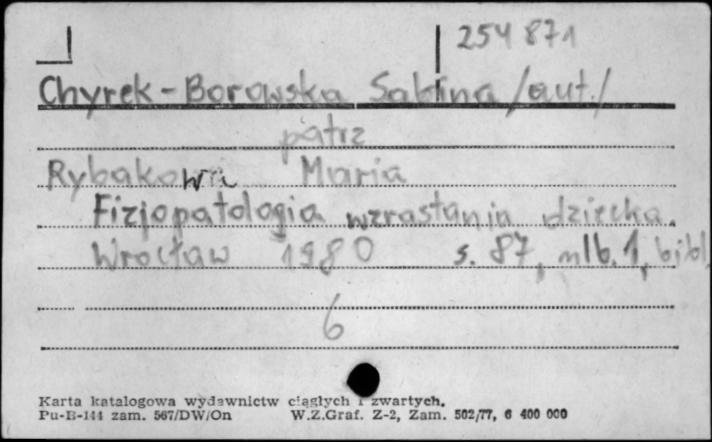 254 871
Chyrek-Borowska Sabina /aut./
patrz
Rybakowa Maria
Fizjopatologia wzrastania dziecka.
Wrocław 1980 s. 87, nlb. 1, bibl.
6
Karta katalogowa wydawnictw ciągłych i zwartych.
Pu-B-144 zam. 567/DW/On W.Z.Graf. Z-2, Zam. 502/77, 6 400 000